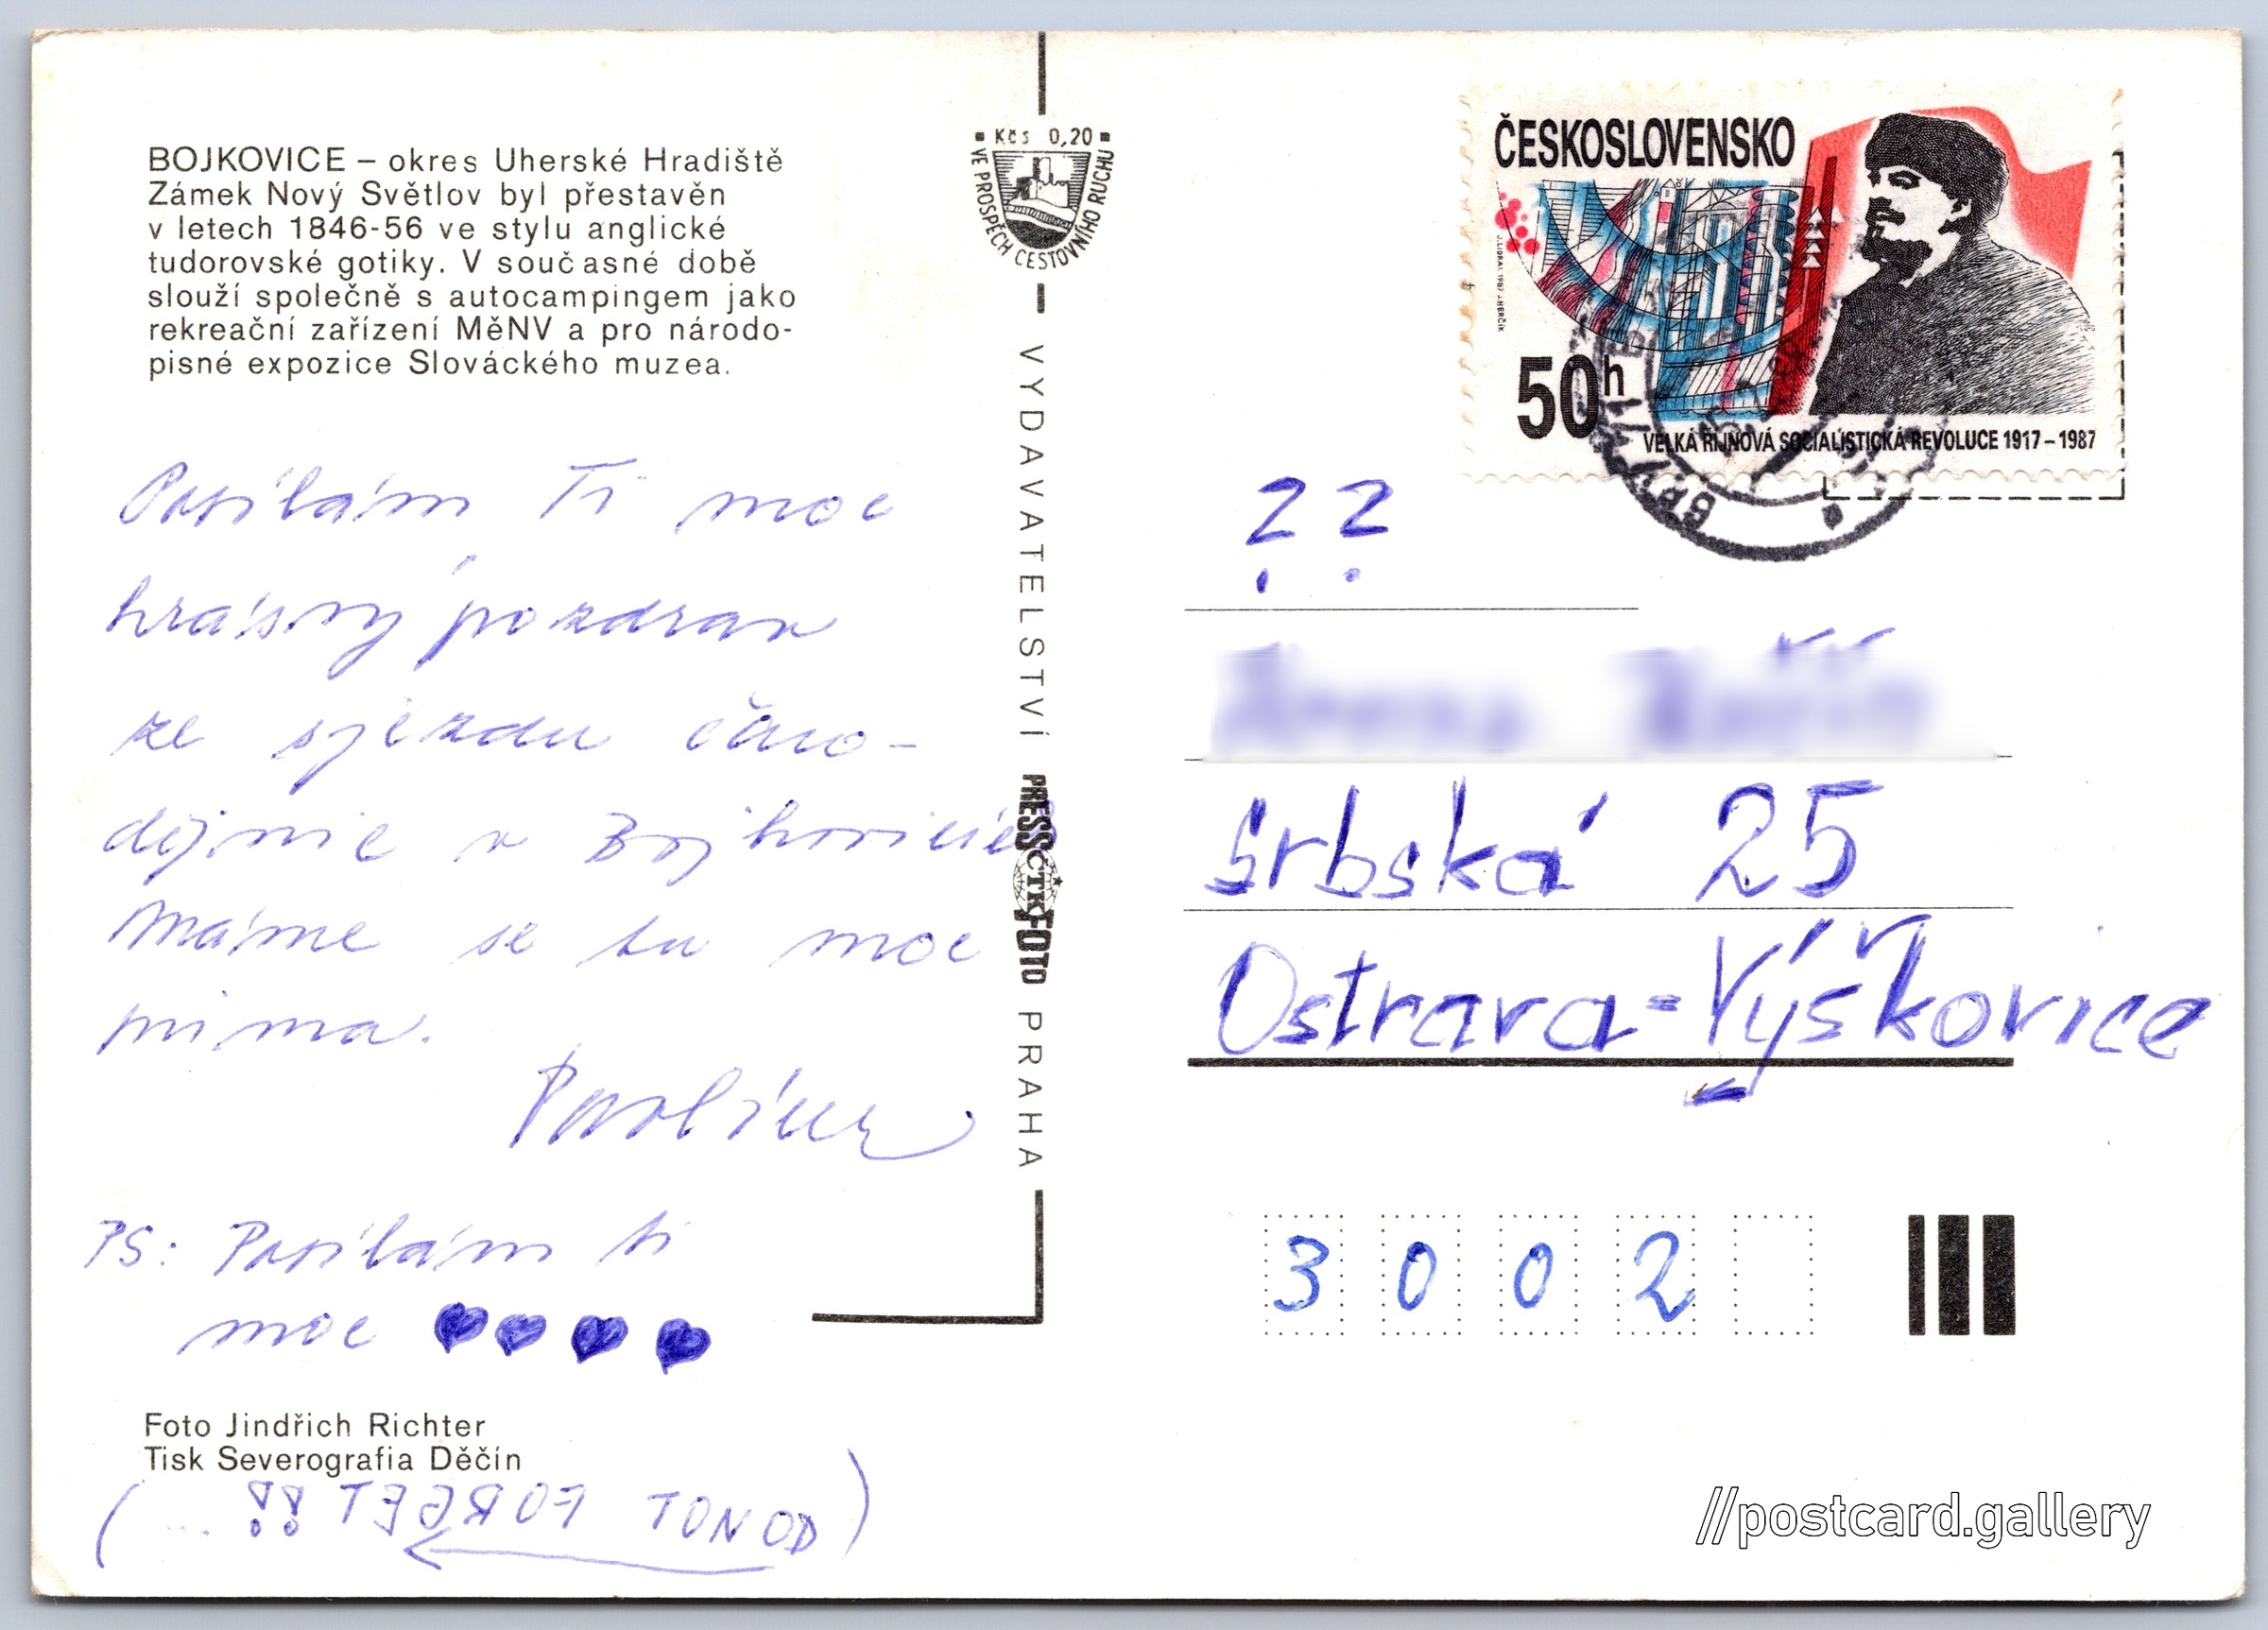 BOJKOVICE – okres Uherské Hradiště
Zámek Nový Světlov byl přestavěn
v letech 1846-56 ve stylu anglické
tudorovské gotiky. V součásné době
slouží společně s autocampingem jako
rekreační zařízení MěNV a pro národo-
pisné expozice Slováckého muzea.
Posílám Ti moc
krásný pozdrav
ze sjezdu čaro-
dějnic v Bojkovicích
Máme se tu moc
prima.
Pavlína
PS: Posílám ti
moc
Foto Jindřich Richter
Tisk Severografia Děčín
(DO NOT FORGET !! ...)
Kčs 0,20
VE PROSPĚCH CESTOVNÍHO RUCHU
VYDAVATELSTVÍ PRESSFOTO PRAHA
ČTK
ČESKOSLOVENSKO
50h
VELKÁ ŘÍJNOVÁ SOCIALISTICKÁ REVOLUCE 1917 – 1987
J. LIDRAL 1987 J. HERČÍK
??
Srbská 25
Ostrava=Výškovice
3002
//postcard.gallery